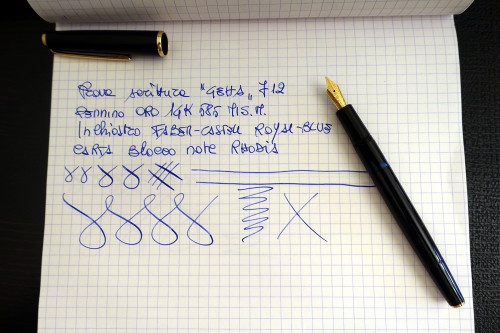 Prova scrittura "GEHA„ 712
Pennino ORO 14K 585 MIS.M.
Inchiostro FABER-CASTELL ROYAL-BLUE
carta Blocco note RHODIA